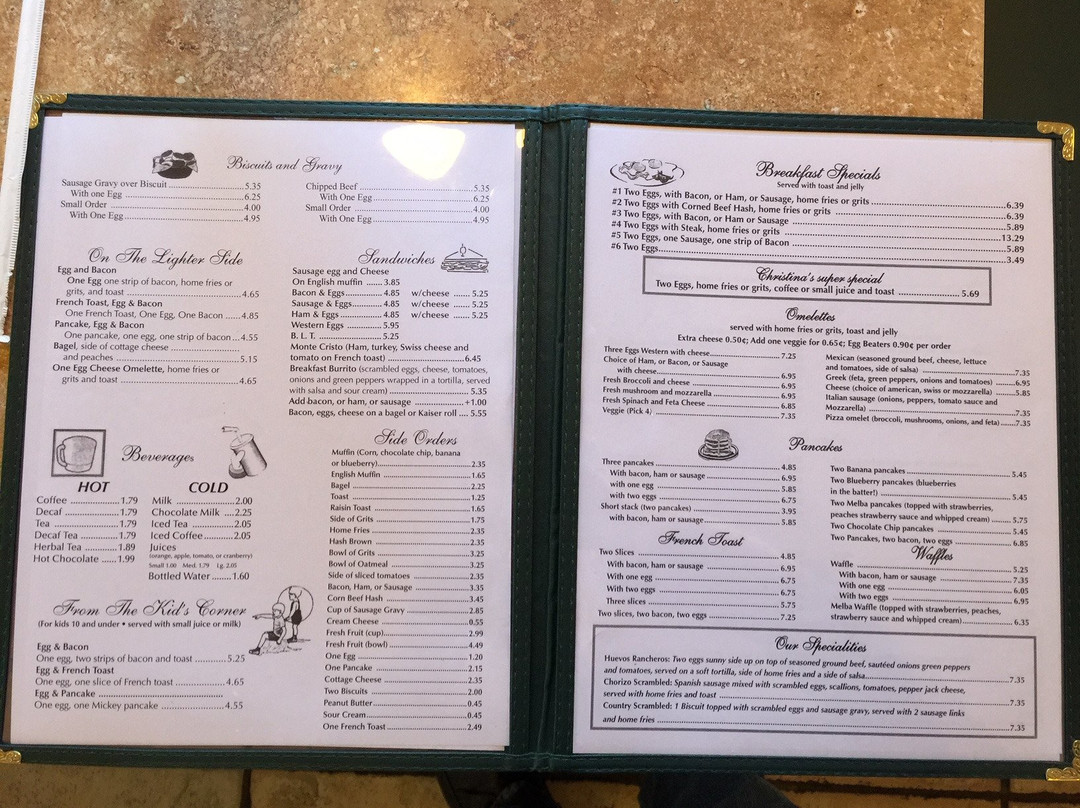 Biscuits and Gravy
Sausage Gravy over Biscuit 5.35
With one Egg 6.25
Small Order 4.00
With One Egg 4.95
Chipped Beef 5.35
With One Egg 6.25
Small Order 4.00
With One Egg 4.95
On The Lighter Side
Egg and Bacon
One Egg one strip of bacon, home fries or
grits, and toast 4.65
French Toast, Egg & Bacon
One French Toast, One Egg, One Bacon 4.85
Pancake, Egg & Bacon
One pancake, one egg, one strip of bacon 4.55
Bagel, side of cottage cheese
and peaches 5.15
One Egg Cheese Omelette, home fries or
grits and toast 4.65
Sandwiches
Sausage egg and Cheese
On English muffin 3.85
Bacon & Eggs 4.85 w/cheese 5.25
Sausage & Eggs 4.85 w/cheese 5.25
Ham & Eggs 4.85 w/cheese 5.25
Western Eggs 5.95
B. L. T. 5.25
Monte Cristo (Ham, turkey, Swiss cheese and
tomato on French toast) 6.45
Breakfast Burrito (scrambled eggs, cheese, tomatoes,
onions and green peppers wrapped in a tortilla, served
with salsa and sour cream) 5.35
Add bacon, or ham, or sausage +1.00
Bacon, eggs, cheese on a bagel or Kaiser roll 5.55
Beverages
HOT
Coffee 1.79
Decaf 1.79
Tea 1.79
Decaf Tea 1.79
Herbal Tea 1.89
Hot Chocolate 1.99
COLD
Milk 2.00
Chocolate Milk 2.25
Iced Tea 2.05
Iced Coffee 2.05
Juices
(orange, apple, tomato, or cranberry)
Small 1.00 Med. 1.79 Lg. 2.05
Bottled Water 1.60
From The Kid's Corner
(For kids 10 and under • served with small juice or milk)
Egg & Bacon
One egg, two strips of bacon and toast 5.25
Egg & French Toast
One egg, one slice of French toast 4.65
Egg & Pancake
One egg, one Mickey pancake 4.55
Side Orders
Muffin (Corn, chocolate chip, banana
or blueberry) 2.35
English Muffin 1.65
Bagel 2.25
Toast 1.25
Raisin Toast 1.65
Side of Grits 1.75
Home Fries 2.35
Hash Brown 2.35
Bowl of Grits 3.25
Bowl of Oatmeal 3.25
Side of sliced tomatoes 2.35
Bacon, Ham, or Sausage 3.35
Corn Beef Hash 3.45
Cup of Sausage Gravy 2.85
Cream Cheese 0.55
Fresh Fruit (cup) 2.99
Fresh Fruit (bowl) 4.49
One Egg 1.20
One Pancake 2.15
Cottage Cheese 2.35
Two Biscuits 2.00
Peanut Butter 0.45
Sour Cream 0.45
One French Toast 2.49
Breakfast Specials
Served with toast and jelly
#1 Two Eggs, with Bacon, or Ham, or Sausage, home fries or grits 6.39
#2 Two Eggs with Corned Beef Hash, home fries or grits 6.39
#3 Two Eggs, with Bacon, or Ham or Sausage 5.89
#4 Two Eggs with Steak, home fries or grits 13.29
#5 Two Eggs, one Sausage, one strip of Bacon 5.89
#6 Two Eggs 3.49
Christina's super special
Two Eggs, home fries or grits, coffee or small juice and toast 5.69
Omelettes
served with home fries or grits, toast and jelly
Extra cheese 0.50¢; Add one veggie for 0.65¢; Egg Beaters 0.90¢ per order
Three Eggs Western with cheese 7.25
Choice of Ham, or Bacon, or Sausage
with cheese 6.95
Fresh Broccoli and cheese 6.95
Fresh mushroom and mozzarella 6.95
Fresh Spinach and Feta Cheese 6.85
Veggie (Pick 4) 7.35
Mexican (seasoned ground beef, cheese, lettuce
and tomatoes, side of salsa) 7.35
Greek (feta, green peppers, onions and tomatoes) 6.95
Cheese (choice of american, swiss or mozzarella) 5.85
Italian sausage (onions, peppers, tomato sauce and
Mozzarella) 7.35
Pizza omelet (broccoli, mushrooms, onions, and feta) 7.35
Pancakes
Three pancakes 4.85
With bacon, ham or sausage 6.95
with one egg 5.85
with two eggs 6.75
Short stack (two pancakes) 3.95
with bacon, ham or sausage 5.85
Two Banana pancakes 5.45
Two Blueberry pancakes (blueberries
in the batter!) 5.45
Two Melba pancakes (topped with strawberries,
peaches strawberry sauce and whipped cream) 5.75
Two Chocolate Chip pancakes 5.45
Two Pancakes, two bacon, two eggs 6.85
French Toast
Two Slices 4.85
With bacon, ham or sausage 6.95
With one egg 6.75
With two eggs 6.75
Three slices 5.75
Two slices, two bacon, two eggs 7.25
Waffles
Waffle 5.25
With bacon, ham or sausage 7.35
With One egg 6.05
With two eggs 6.95
Melba Waffle (topped with strawberries, peaches,
strawberry sauce and whipped cream) 6.35
Our Specialities
Huevos Rancheros: Two eggs sunny side up on top of seasoned ground beef, sautéed onions green peppers
and tomatoes, served on a soft tortilla, side of home fries and a side of salsa 7.35
Chorizo Scrambled: Spanish sausage mixed with scrambled eggs, scallions, tomatoes, pepper jack cheese,
served with home fries and toast 7.35
Country Scrambled: 1 Biscuit topped with scrambled eggs and sausage gravy, served with 2 sausage links
and home fries 7.35